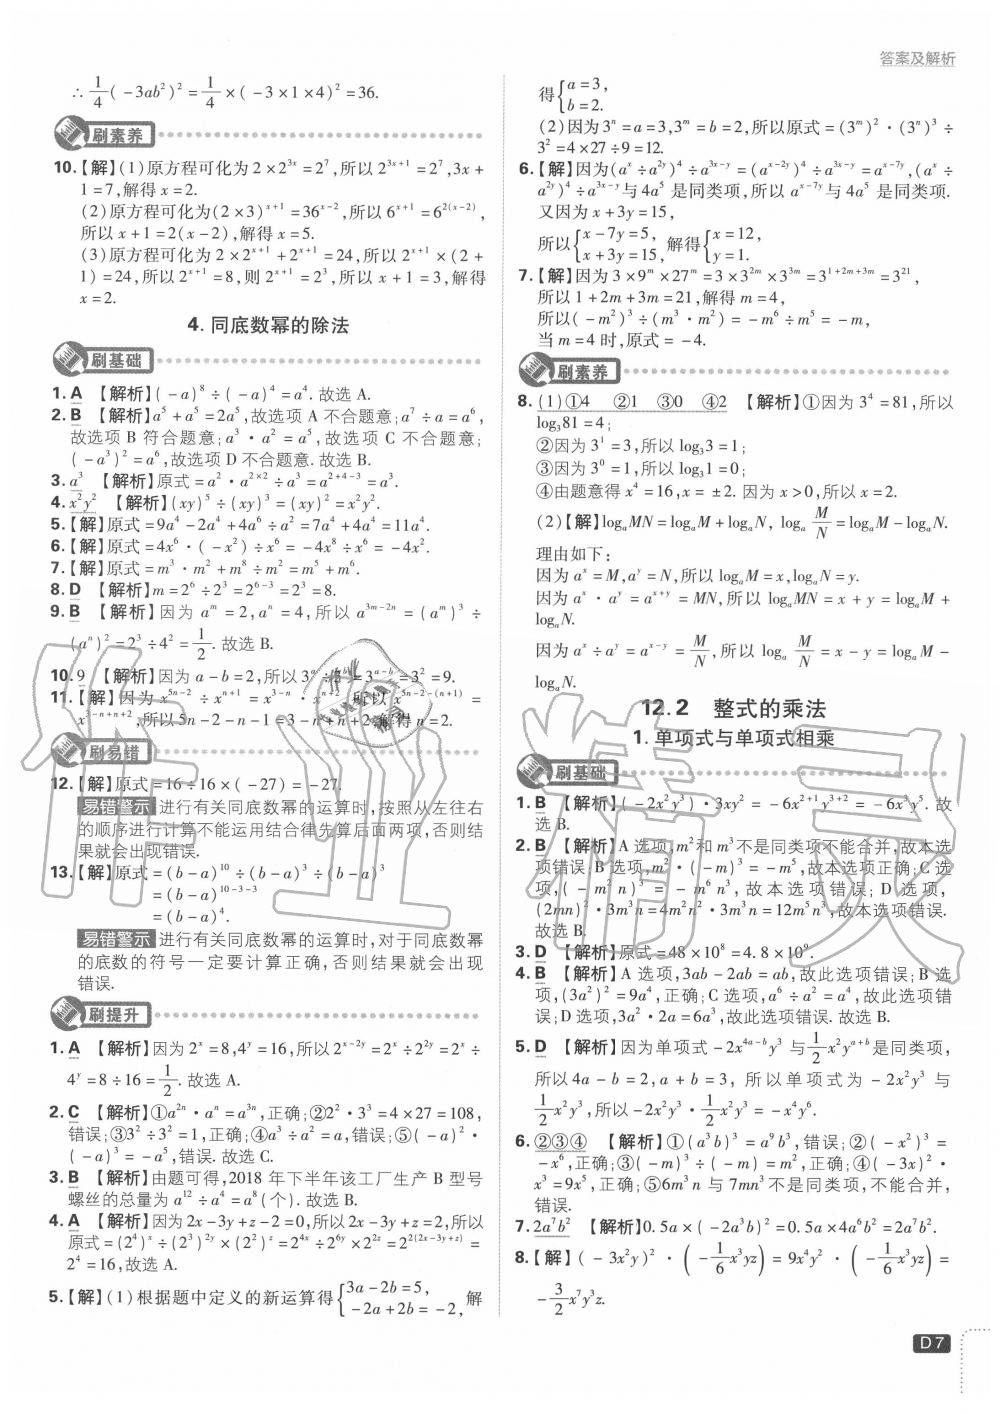 答案及解析
∴ 1/4(-3ab²)² = 1/4×(-3×1×4)² = 36.
刷素养
10.【解】(1)原方程可化为 2×2³ˣ=2⁷,所以 2³ˣ⁺¹=2⁷,3x+
1=7,解得 x=2.
(2)原方程可化为(2×3)ˣ⁺¹=36ˣ⁻²,所以 6ˣ⁺¹=6²⁽ˣ⁻²⁾,
所以 x+1=2(x-2),解得 x=5.
(3)原方程可化为 2×2ˣ⁺¹+2ˣ⁺¹=24,所以 2ˣ⁺¹×(2+
1)=24,所以 2ˣ⁺¹=8,则 2ˣ⁺¹=2³,所以 x+1=3,解得
x=2.
4. 同底数幂的除法
刷基础
1. A 【解析】(-a)⁸÷(-a)⁴=a⁴. 故选 A.
2. B 【解析】a⁵+a⁵=2a⁵,故选项 A 不合题意;a⁷÷a=a⁶,
故选项 B 符合题意;a³·a²=a⁵,故选项 C 不合题意;
(-a³)²=a⁶,故选项 D 不合题意. 故选 B.
3. a³ 【解析】原式=a²·a²ˣ²÷a³=a²⁺⁴⁻³=a³.
4. x²y² 【解析】(xy)⁵÷(xy)³=(xy)²=x²y².
5.【解】原式=9a⁴-2a⁴+4a⁶÷a²=7a⁴+4a⁴=11a⁴.
6.【解】原式=4x⁶·(-x²)÷x⁶=-4x⁸÷x⁶=-4x².
7.【解】原式=m³·m²+m⁸÷m²=m⁵+m⁶.
8. D 【解析】m=2⁶÷2³=2⁶⁻³=2³=8.
9. B 【解析】因为 aᵐ=2,aⁿ=4,所以 a³ᵐ⁻²ⁿ=(aᵐ)³÷
(aⁿ)²=2³÷4²=1/2. 故选 B.
10. 9 【解析】因为 a-b=2,所以 3ᵃ÷3ᵇ=3ᵃ⁻ᵇ=3²=9.
11.【解】因为 x⁵ⁿ⁻²÷xⁿ⁺¹=x³⁻ⁿ·xⁿ⁺²,所以 x⁵ⁿ⁻²⁻⁽ⁿ⁺¹⁾=
x³⁻ⁿ⁺ⁿ⁺²,所以 5n-2-n-1=3-n+n+2,解得 n=2.
刷易错
12.【解】原式=16÷16×(-27)=-27.
易错警示 进行有关同底数幂的运算时,按照从左往右
的顺序进行计算不能运用结合律先算后面两项,否则结
果就会出现错误.
13.【解】原式=(b-a)¹⁰÷(b-a)³÷(b-a)³
=(b-a)¹⁰⁻³⁻³
=(b-a)⁴.
易错警示 进行有关同底数幂的运算时,对于同底数幂
的底数的符号一定要计算正确,否则结果就会出现
错误.
刷提升
1. A 【解析】因为 2ˣ=8,4ʸ=16,所以 2ˣ⁻²ʸ=2ˣ÷2²ʸ=2ˣ÷
4ʸ=8÷16=1/2. 故选 A.
2. C 【解析】①a²ⁿ·aⁿ=a³ⁿ,正确;②2²·3³=4×27=108,
错误;③3²÷3²=1,正确;④a³÷a²=a,错误;⑤(-a)²·
(-a)³=-a⁵,错误. 故选 C.
3. B 【解析】由题可得,2018 年下半年该工厂生产 B 型号
螺丝的总量为 a¹²÷a⁴=a⁸(个). 故选 B.
4. A 【解析】因为 2x-3y+z-2=0,所以 2x-3y+z=2,所以
原式=(2⁴)ˣ÷(2³)²ʸ×(2²)ᶻ=2⁴ˣ÷2⁶ʸ×2²ᶻ=2²⁽²ˣ⁻³ʸ⁺ᶻ⁾=
2⁴=16,故选 A.
5.【解】(1)根据题中定义的新运算得{3a-2b=5, -2a+2b=-2, 解
得{a=3, b=2.
(2)因为 3ⁿ=a=3,3ᵐ=b=2,所以原式=(3ᵐ)²·(3ⁿ)³÷
3²=4×27÷9=12.
6.【解】因为(aˣ÷a²ʸ)⁴÷a³ˣ⁻ʸ=(aˣ⁻²ʸ)⁴÷a³ˣ⁻ʸ=aˣ⁻⁷ʸ,(aˣ÷
a²ʸ)⁴÷a³ˣ⁻ʸ与 4a⁵ 是同类项,所以 aˣ⁻⁷ʸ与 4a⁵ 是同类项.
又因为 x+3y=15,
所以{x-7y=5, x+3y=15, 解得{x=12, y=1.
7.【解】因为 3×9ᵐ×27ᵐ=3×3²ᵐ×3³ᵐ=3¹⁺²ᵐ⁺³ᵐ=3²¹,
所以 1+2m+3m=21,解得 m=4,
所以(-m²)³÷(m³·m²)=-m⁶÷m⁵=-m,
当 m=4 时,原式=-4.
刷素养
8. (1)①4 ②1 ③0 ④2 【解析】①因为 3⁴=81,所以
log₃81=4;
②因为 3¹=3,所以 log₃3=1;
③因为 3⁰=1,所以 log₃1=0;
④由题意得 x⁴=16,x=±2. 因为 x>0,所以 x=2.
(2)【解】logₐMN=logₐM+logₐN, logₐ M/N=logₐM-logₐN.
理由如下:
因为 aˣ=M,aʸ=N,所以 logₐM=x,logₐN=y.
因为 aˣ·aʸ=aˣ⁺ʸ=MN,所以 logₐMN=x+y=logₐM+
logₐN.
因为 aˣ÷aʸ=aˣ⁻ʸ=M/N,所以 logₐ M/N=x-y=logₐM-
logₐN.
12.2 整式的乘法
1. 单项式与单项式相乘
刷基础
1. B 【解析】(-2x²y³)·3xy²=-6x²⁺¹y³⁺²=-6x³y⁵. 故
选 B.
2. B 【解析】A 选项,m²和 m³不是同类项不能合并,故本选
项错误;B 选项,m²·(-m)³=-m⁵,故本选项正确;C 选
项,(-m²n)³=-m⁶n³,故本选项错误;D 选项,
(2mn)²·3m³n=4m²n²·3m³n=12m⁵n³,故本选项错误.
故选 B.
3. D 【解析】原式=48×10⁸=4.8×10⁹.
4. B 【解析】A 选项,3ab-2ab=ab,故此选项错误;B 选
项,(3a²)²=9a⁴,正确;C 选项,a⁶÷a²=a⁴,故此选项错
误;D 选项,3a²·2a=6a³,故此选项错误. 故选 B.
5. D 【解析】因为单项式-2x⁴ᵃ⁻ᵇy³ 与1/2x²yᵃ⁺ᵇ是同类项,
所以 4a-b=2,a+b=3, 所以单项式为 -2x²y³ 与
1/2x²y³,所以-2x²y³·1/2x²y³=-x⁴y⁶.
6. ②③④ 【解析】①(a³b)³=a⁹b³,错误;②(-x²)³=
-x⁶,正确;③(-m)³÷(-m)=m²,正确;④(-3x)²·
x³=9x⁵,正确;⑤6m³n 与 7mn³不是同类项,不能合并,
错误.
7. 2a⁷b² 【解析】0.5a×(-2a³b)²=0.5a×4a⁶b²=2a⁷b².
8.【解】(-3x²y)²·(-1/6x³yz)=9x⁴y²·(-1/6x³yz)=
-3/2x⁷y³z.
D7
作业精灵